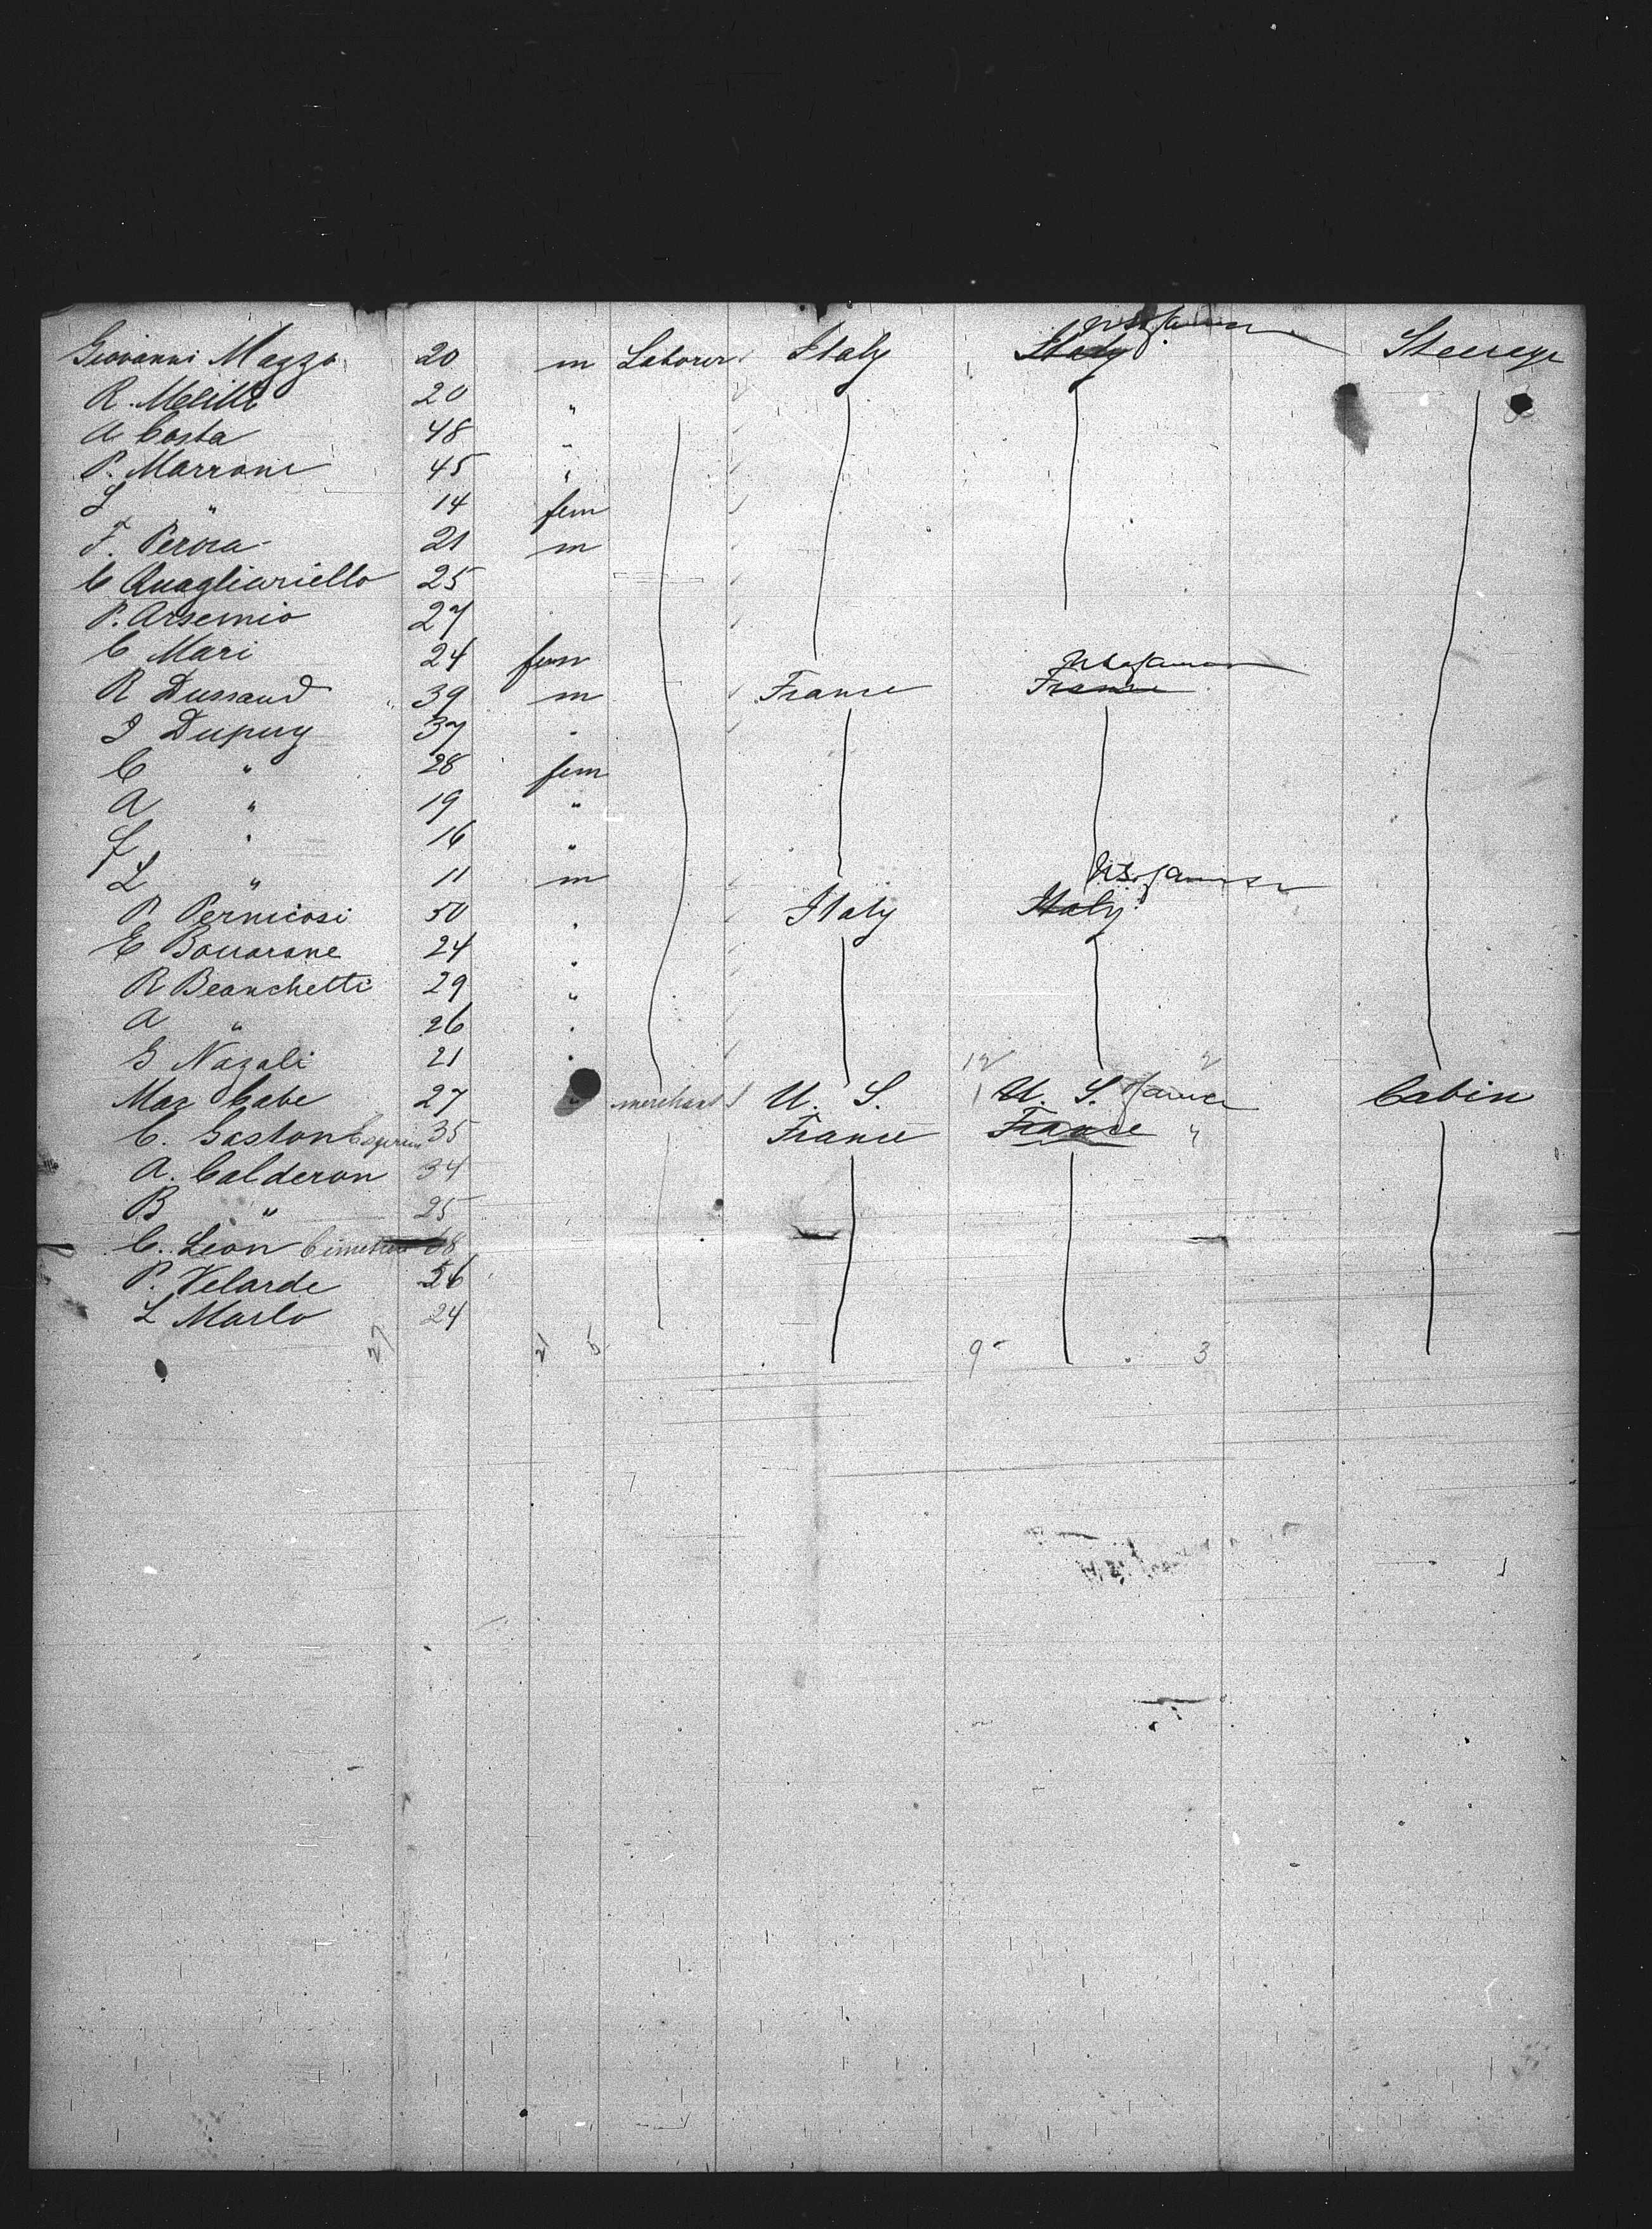 Giovanni Mazzo 20 m Laborer Italy Italy Steerage
R. Melilli 20 "
A Costa 48 "
P. Marrone 45 "
L " 14 fem
F. Perora 21 m
C Quagliariello 25
P. Arsemio 27
C Mari 24 fem
R Dussaud 39 m France France
J Dupuy 37 "
C " 28 fem
A " 19 "
f " 16 "
L " 11 m
P Pernicosi 50 " Italy Italy
E Bouarane 24 "
R Beanchetti 29 "
A " 26 "
G Nazali 21 " 12 2
Mac Cabe 27 " merchant U. S. 1 U. S. Cabin
C. Gaston 35 France France "
A. Calderon 34
B " 25
C. Leon 38
P. Velarde 26
L Marlo 24
27 21 6 9 3